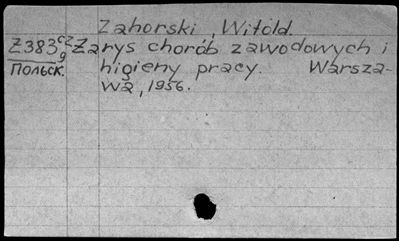 Zahorski, Witold.
Z383 cz 9 Zarys chorób zawodowych i
Польск. higieny pracy. Warsza-
wa, 1956.